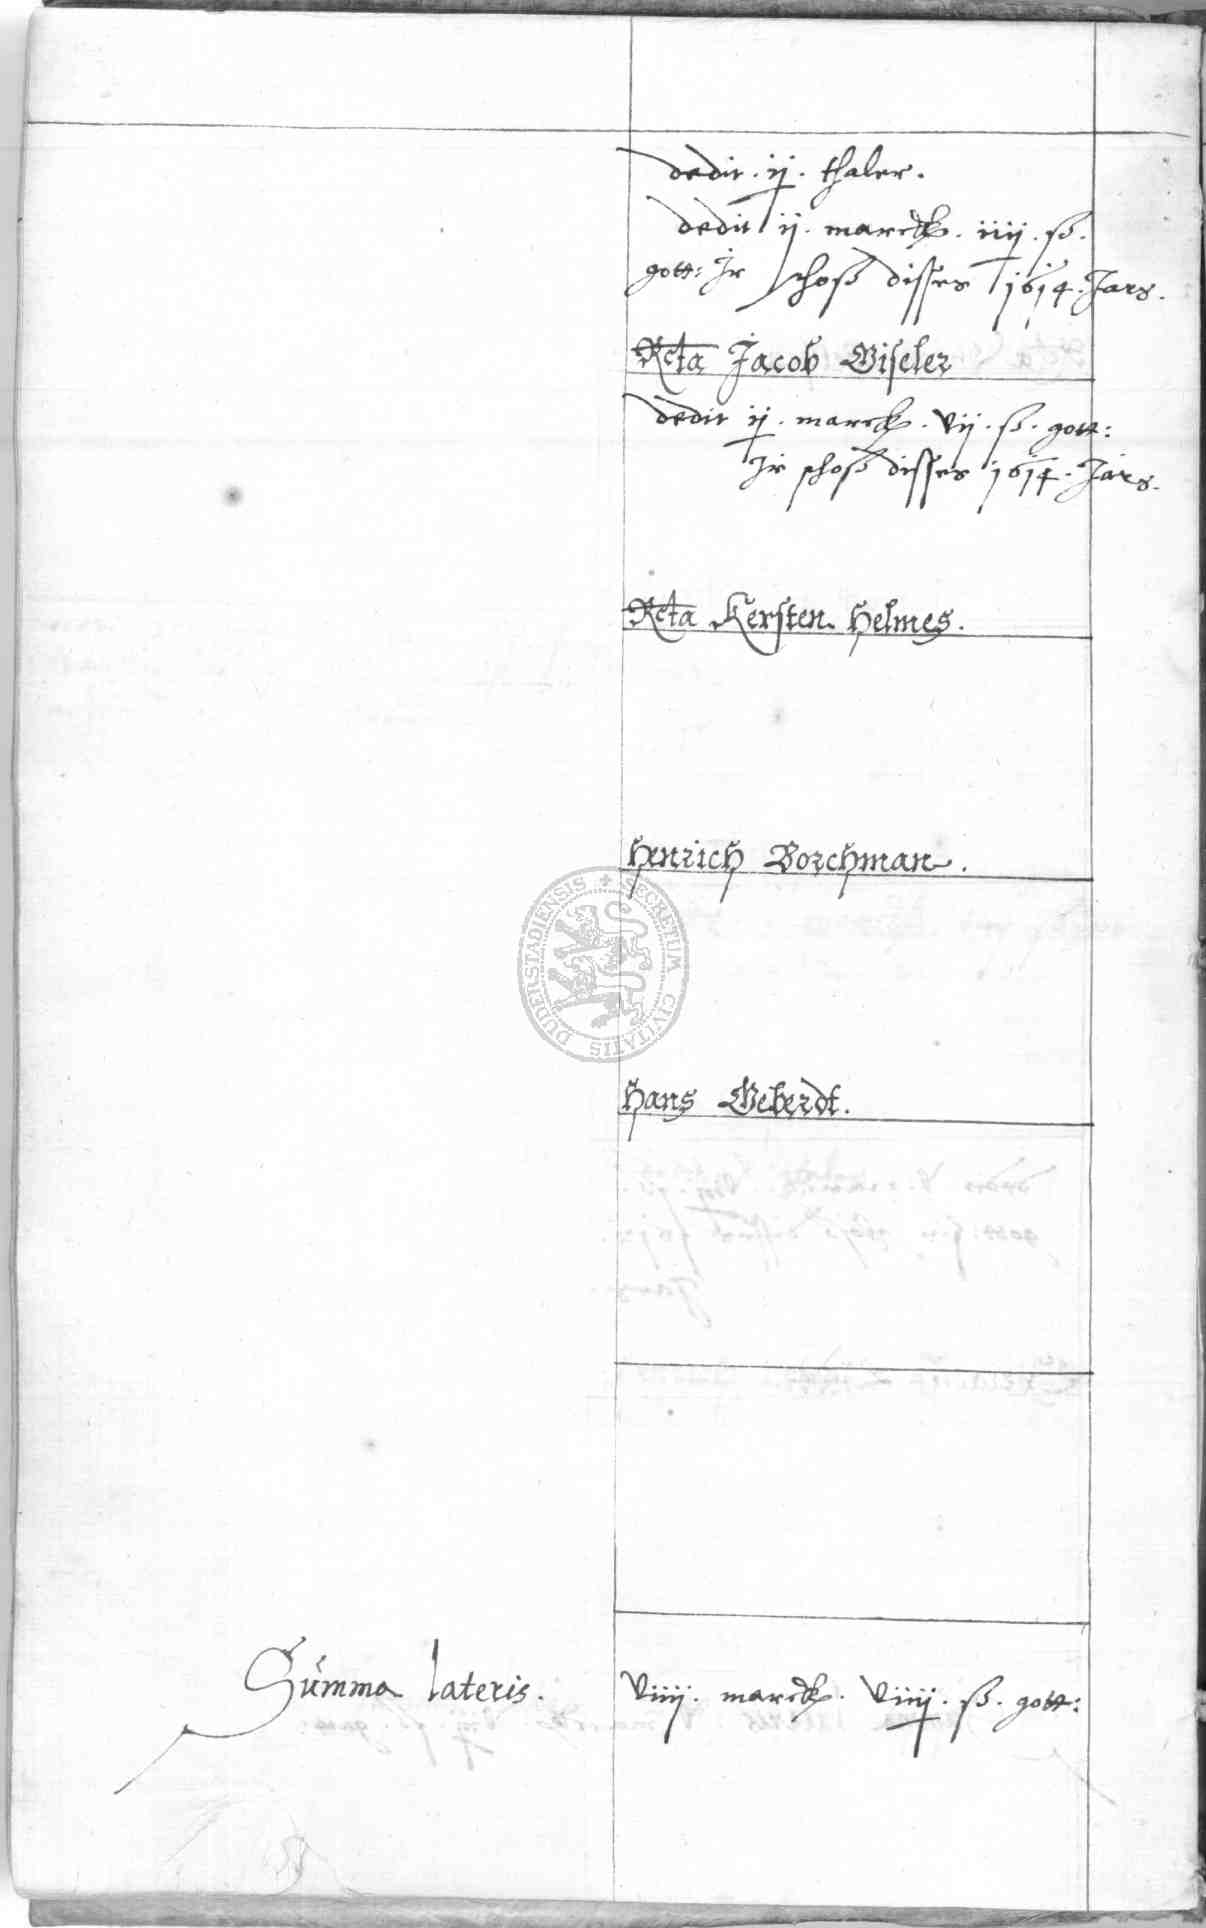 dedit . ij . thaler .
dedit ij . marck . iiij . ß .
gott: Jr schoß disses 1614 . Jars .
Rcta Jacob Giseler
dedit ij . marck . vij . ß . gott:
Jr schoß disses 1614 . Jars .
Rcta Kersten Helmes .
Henrich Borchman .
DUDERSTADIENSIS + SECRETUM CIVITATIS
Hans Geberdt .
Summa lateris . viiij . marck . viiij . ß . gott: